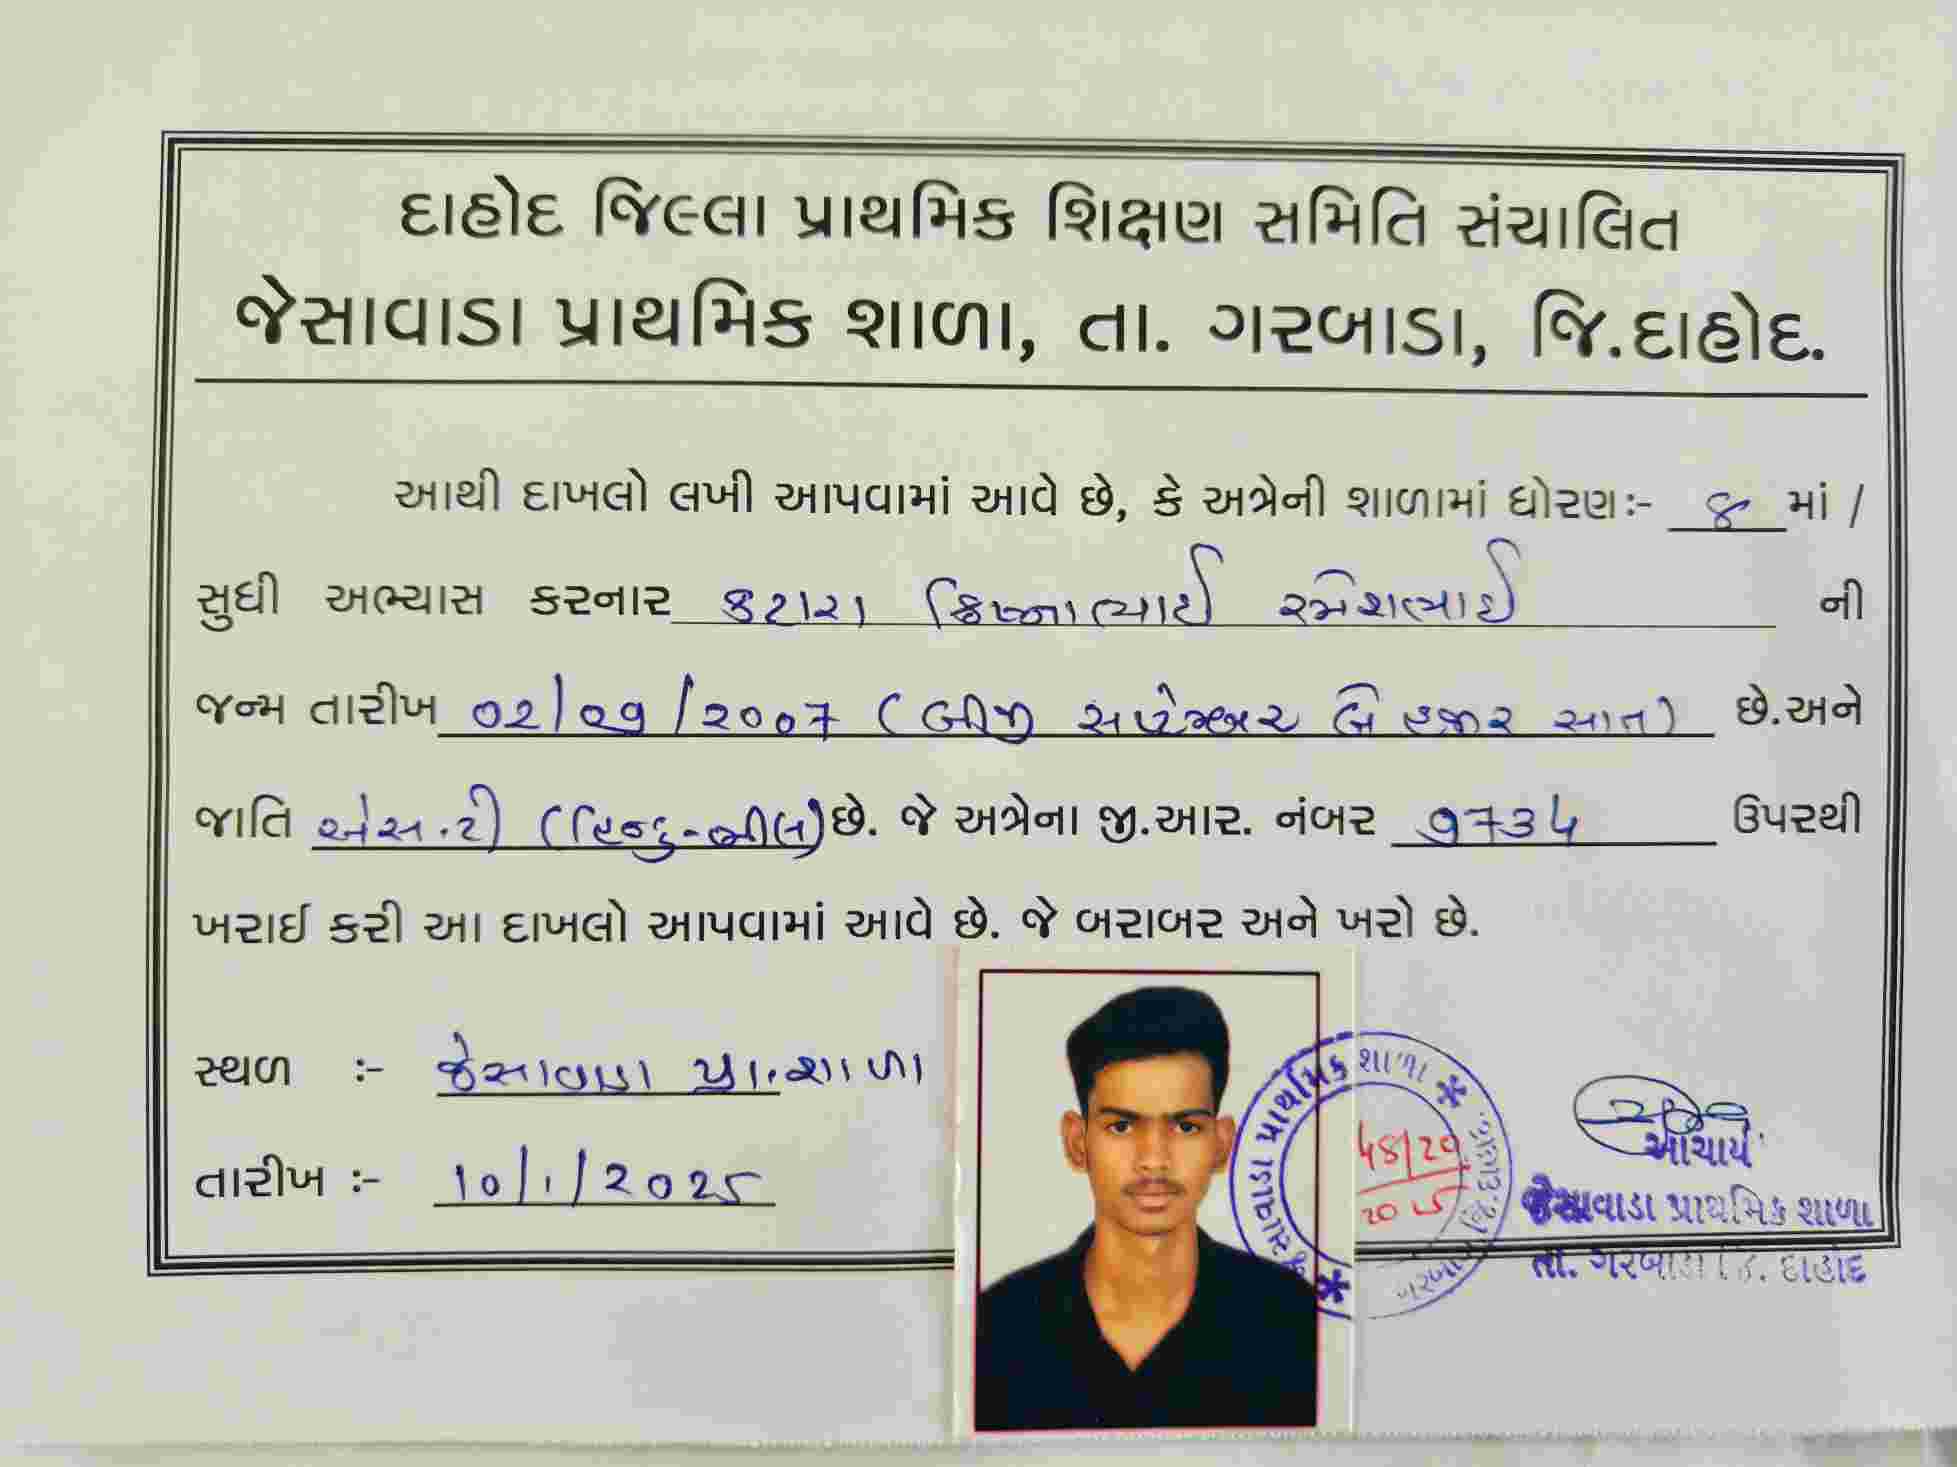 દાહોદ જિલ્લા પ્રાથમિક શિક્ષણ સમિતિ સંચાલિત
જેસાવાડા પ્રાથમિક શાળા, તા. ગરબાડા, જિ.દાહોદ.
આથી દાખલો લખી આપવામાં આવે છે, કે અત્રેની શાળામાં ધોરણઃ- ૪ માં /
સુધી અભ્યાસ કરનાર કટારા ક્રિષ્નાભાઈ રમેશભાઈ ની
જન્મ તારીખ 02/09/2007 (બીજી સપ્ટેમ્બર બે હજાર સાત) છે.અને
જાતિ એસ.ટી (હિન્દુ-ભીલ) છે. જે અત્રેના જી.આર. નંબર 9734 ઉપરથી
ખરાઈ કરી આ દાખલો આપવામાં આવે છે. જે બરાબર અને ખરો છે.
સ્થળ :- જેસાવાડા પ્રા.શાળા
તારીખ :- 10/1/2025
જેસાવાડા પ્રાથમિક શાળા * ગરબાડા જી.દાહોદ. *
2025
આચાર્ય
જેસાવાડા પ્રાથમિક શાળા
તા. ગરબાડા જિ. દાહોદ